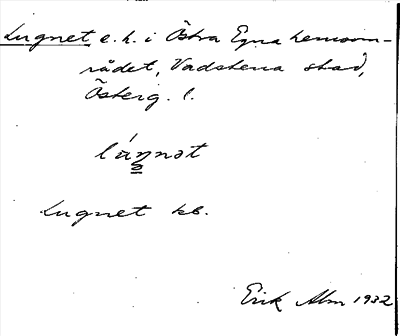 Lugnet e. h. i Östra Egna hemsom-
rådet, Vadstena stad,
Österg. l.
Lugnet kb.
Erik Alm 1932